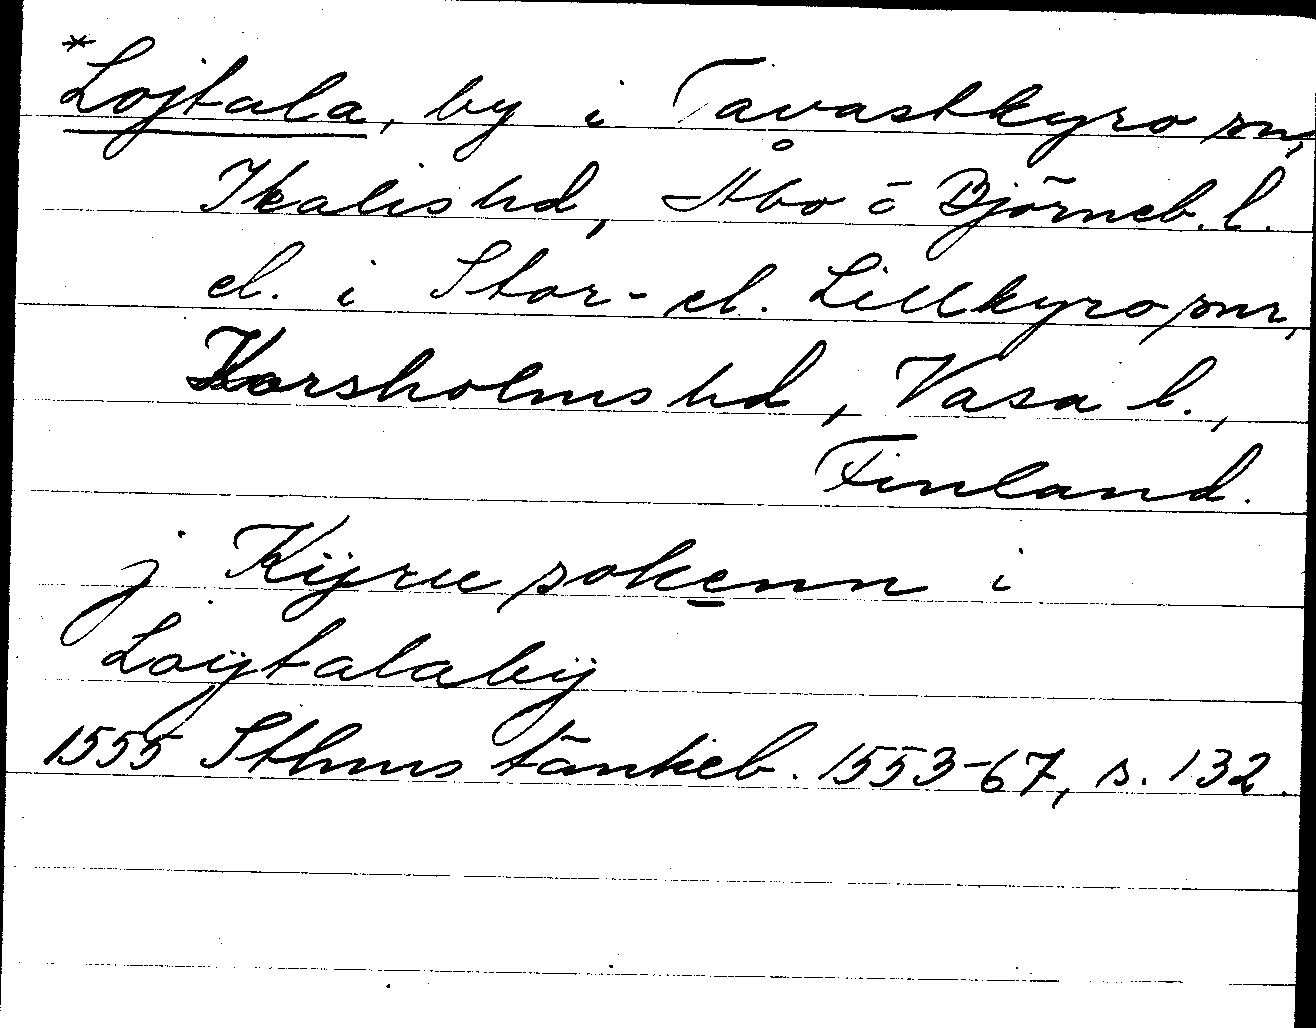 *Lojtala, by i Tavastkyro sn,
Ikalis hd, Åbo o Björneb. l.
el. i Stor- el. Lillkyro snr,
Korsholms hd, Vasa l.,
Finland.
j Kÿru sokenn i
Loÿtalabÿ
1555 Sthms tänkeb. 1553-67, s. 132.